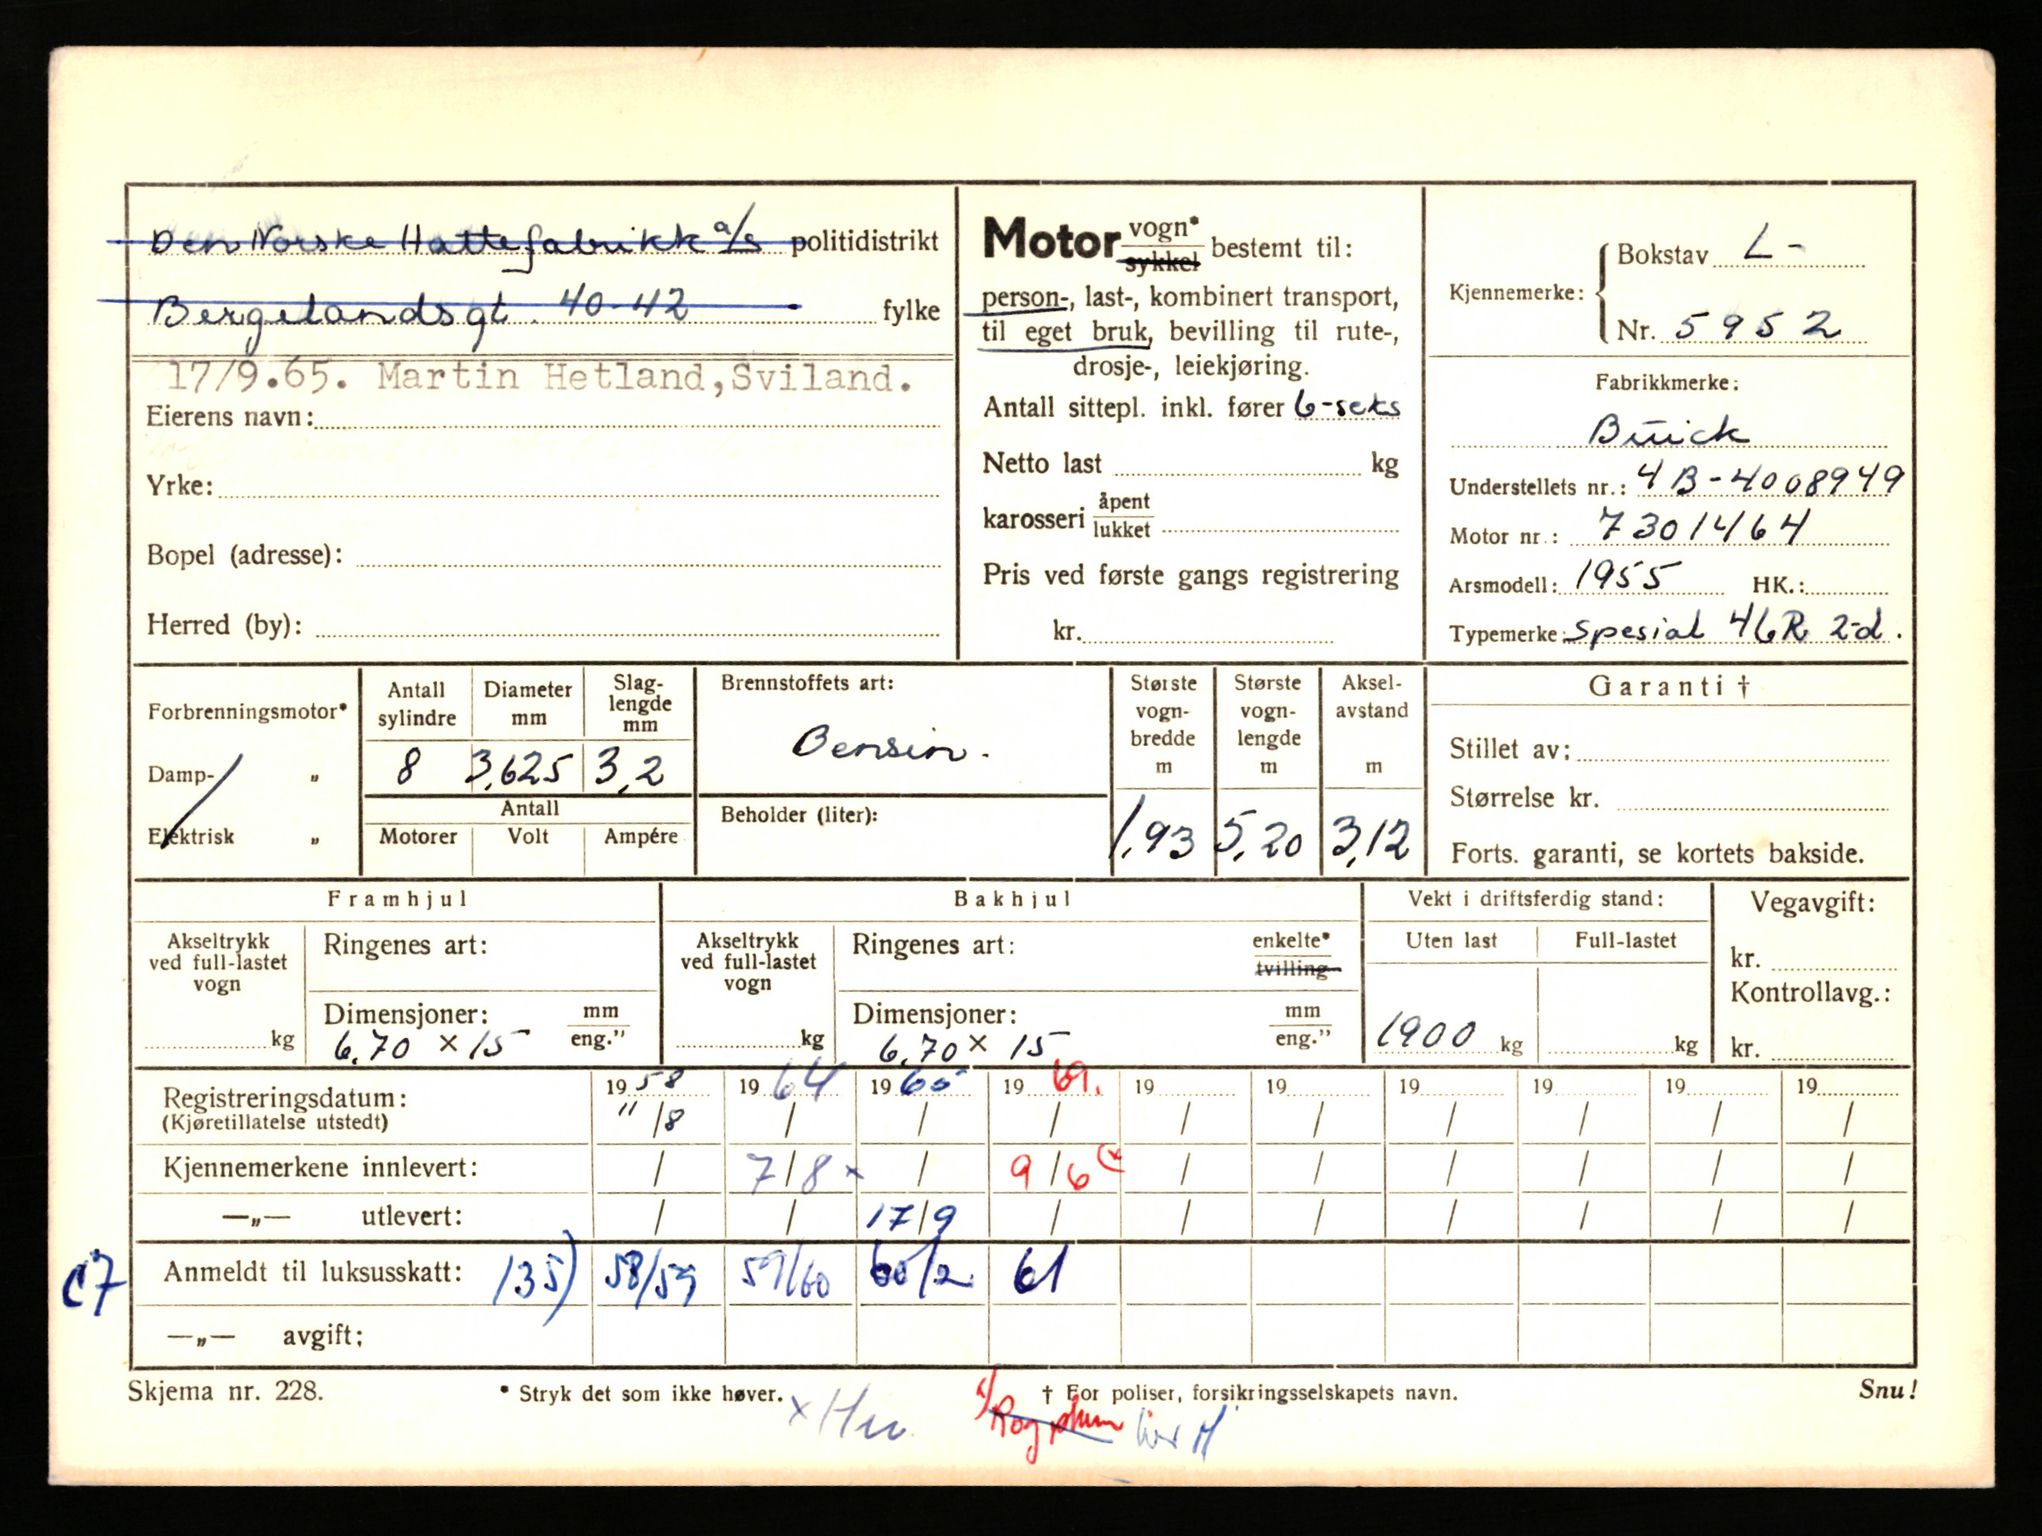 Den Norske Hattefabrikk a/s politidistrikt
Bergelandsgt. 40-42 fylke
17/9.65. Martin Hetland, Sviland.
Eierens navn:
Yrke:
Bopel (adresse):
Herred (by):
Motor vogn* sykkel bestemt til:
person-, last-, kombinert transport,
til eget bruk, bevilling til rute-,
drosje-, leiekjøring.
Antall sittepl. inkl. fører 6-seks
Netto last kg
karosseri åpent lukket
Pris ved første gangs registrering
kr.
Kjennemerke: Bokstav L-
Nr. 5952
Fabrikkmerke:
Buick
Understellets nr.: 4B-4008949
Motor nr.: 7301464
Arsmodell: 1955 HK.:
Typemerke: Spesial 46R 2-d.
Forbrenningsmotor*
Damp- „
Elektrisk „
Antall sylindre
Diameter mm
Slag-
lengde
mm
8 3,625 3,2
Antall
Motorer Volt Ampére
Brennstoffets art:
Bensin.
Beholder (liter):
Største
vogn-
bredde
m
1,93
Største
vogn-
lengde
m
5,20
Aksel-
avstand
m
3,12
Garanti †
Stillet av:
Størrelse kr.
Forts. garanti, se kortets bakside.
Framhjul
Akseltrykk
ved full-lastet
vogn
kg
Ringenes art:
Dimensjoner: mm
6,70 × 15 eng."
Bakhjul
Akseltrykk
ved full-lastet
vogn
kg
Ringenes art: enkelte*
tvilling
Dimensjoner: mm
6,70 × 15 eng."
Vekt i driftsferdig stand:
Uten last Full-lastet
1900 kg kg
Vegavgift:
kr.
Kontrollavg.:
kr.
Registreringsdatum: 1958 1964 1965 1969. 19 19 19 19 19 19
(Kjøretillatelse utstedt) "/8 / / / / / / / / /
Kjennemerkene innlevert: / 7/8 x / 9/6 (x / / / / / /
—„— utlevert: / / 17/9 / / / / / / /
C7 Anmeldt til luksusskatt: 135) 58/59 59/60 60/2 61
—„— avgift:
Skjema nr. 228. * Stryk det som ikke høver. † For poliser, forsikringsselskapets navn. Snu!